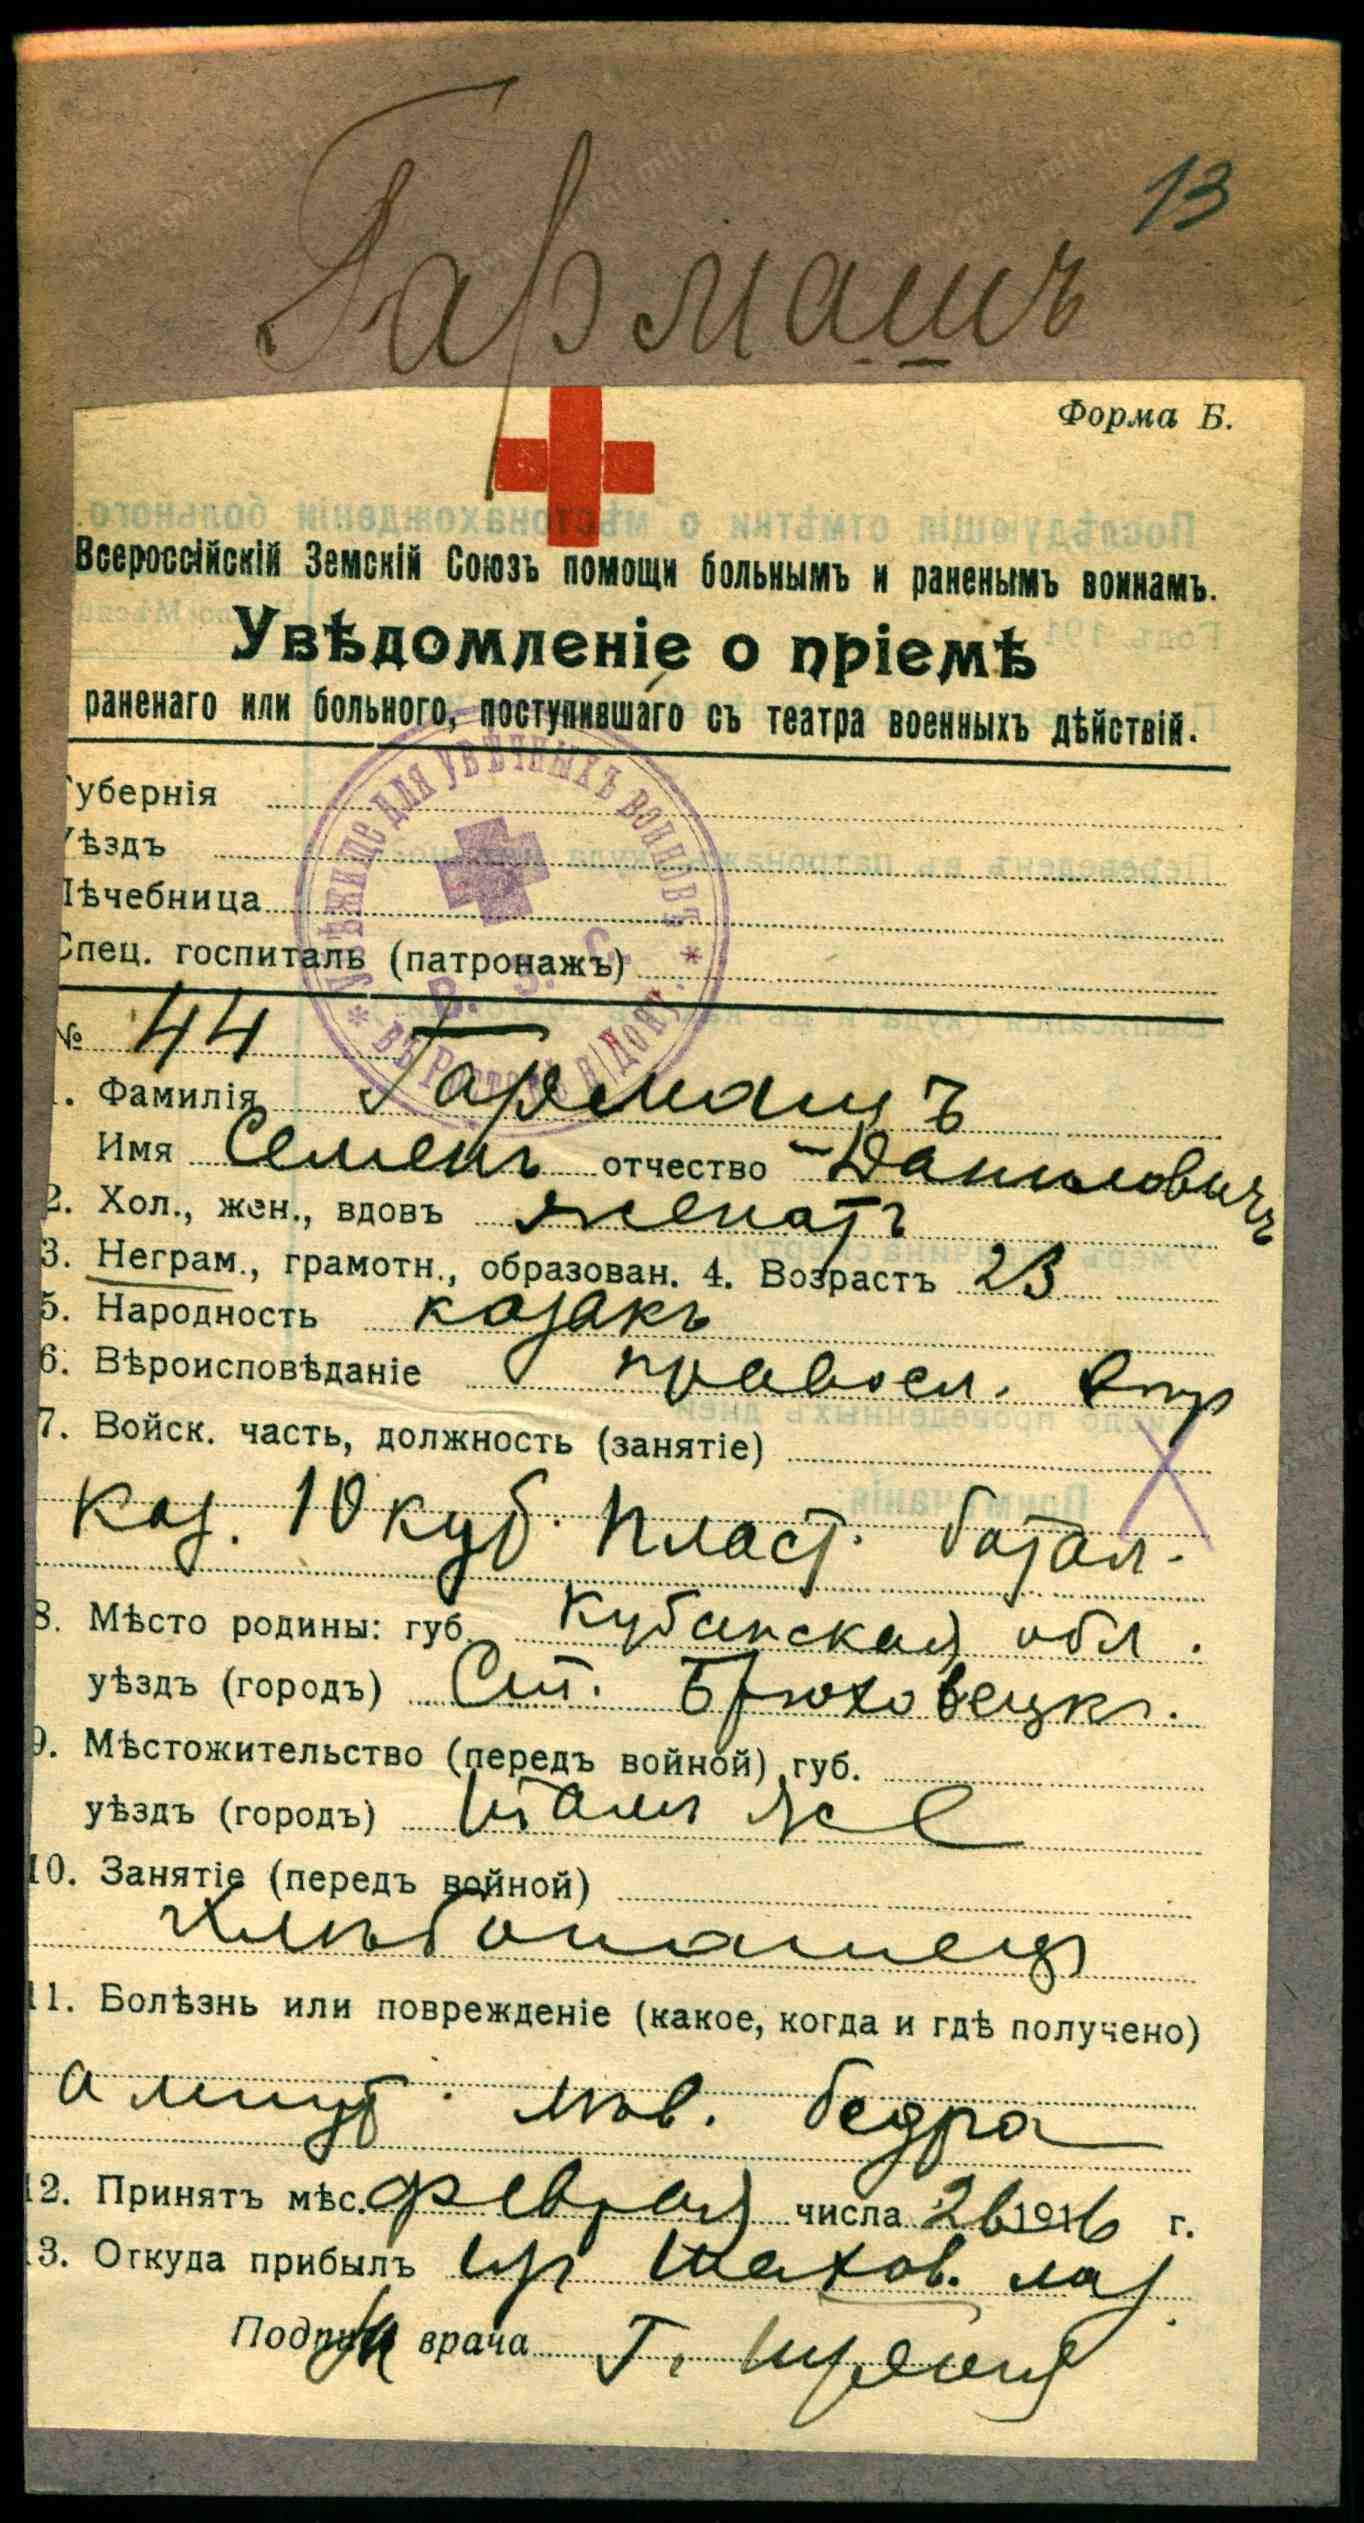 13
Гармашъ
Форма Б.
Всероссійскій Земскій Союзъ помощи больнымъ и раненымъ воинамъ.
Увѣдомленіе о пріемѣ
раненаго или больного, поступившаго съ театра военныхъ дѣйствій.
Губернія
Уѣздъ
Лѣчебница
Спец. госпиталь (патронажъ)
Убѣжище для увѣчныхъ воиновъ
В. З. С.
въ Ростовѣ н/Дону.
№ 44
1. Фамилія Гармашъ
Имя Семенъ отчество Даниловичъ
2. Хол., жен., вдовъ женатъ
3. Неграм., грамотн., образован. 4. Возрастъ 23
5. Народность казакъ
6. Вѣроисповѣданіе правосл.
7. Войск. часть, должность (занятіе)
Каз. 10 куб. пласт. батал.
8. Мѣсто родины: губ. Кубанская обл.
уѣздъ (городъ) Ст. Брюховецк.
9. Мѣстожительство (передъ войной) губ.
уѣздъ (городъ) тамъ же
10. Занятіе (передъ войной)
хлѣбопашецъ
11. Болѣзнь или поврежденіе (какое, когда и гдѣ получено)
ампут. лѣв. бедра
12. Принятъ мѣс. февраля числа 26 1916 г.
13. Откуда прибылъ изъ шахов. лаз.
Подпись врача Г.
www.gwar.mil.ru